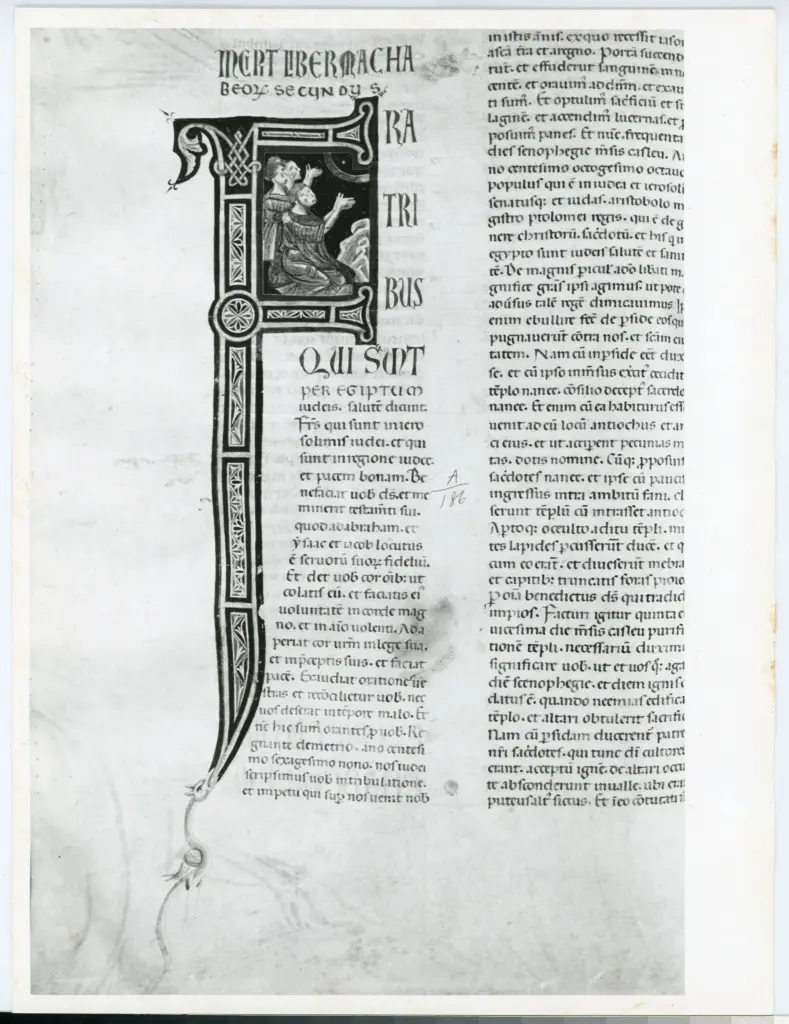 INCIPIT LIBER MACHA
BEORꝜ SECUNDUS.
FRA
TRI
BUS
QUI SUNT
PER EGIPTUM
iudeis. salutē dicunt.
Frs̄ qui sunt in iero
solimis iudei. et qui
sunt in regione iudeę.
et pacem bonam. Be
nefaciat uob ds̄. et me
minerit testam̄ti sui.
quod ad abraham. et
ẏsaac et iacob locutus
ē seruorū suoꝝ fideliū.
Et det uob cor oīb: ut
colatis eū. et faciatis ei᾽
uoluntatē in corde mag
no. et in aīo uolenti. Ada
periat cor urm̄ in lege sua.
et in p̄ceptis suis. et faciat
pacē. Exaudiat orationes ue
stras et recōcilietur uob. nec
uos deserat in tēpore malo. Et
nē hic sum᾽ orantes ꝓ uob. Re
gnante demetrio. anō centesi
mo sexagesimo nono. nos iudei
scripsimus uob in tribulatione.
et impetu qui suꝑ nos uenit nob
A
186
in istis ānis. ex quo recessit iason
a scā tr̄a et a regno. Portā succend
rūt. et effuderūt sanguinē in n
centē. et orauim᾽ ad dn̄m. et exau
ti sum᾽. Et optulim᾽ sac̄ficiū et si
laginē. et accendim᾽ lucernas. et ꝓ
posuim᾽ panes. Et nūc. frequenta
dies senophegie m̄sis casleu. An
no centesimo octogesimo octauo
populus qui ē in iudea et ierosoli
senatusq: et iudas. aristobolo m
gistro ptolomei regis. qui ē de g
nere christorū. sac̄dotū. et his qui
egypto sunt iudeis salutē et sani
tē. De magnis ꝑicul᾽ a dō libati m
gnifice grās ipsi agimus. ut pote
aduersus talē regē dimicauimus Ip
enim ebullire fec̄ de ꝑside eos qui
pugnauerūt cōtra nos. et sc̄am ciu
tatem. Nam cū in ꝑside eēt dux
se. et cū ipso inm̄sus exercit᾽ cecidit
tēplo naneę. cōsilio decept᾽ sacerdo
naneę. Et enim cū ea habiturus ess
uenit ad eū locū antiochus et am
ci eius. et ut acciꝑent pecunias m
tas. dotis nomine. Cūq: ꝓposuiss
sac̄dotes naneę. et ipse cū paucis
ingressus intra ambitū fani. cl
serunt tēplū cū intrasset antioc
Aꝑtoq: occulto aditu tēpli. mi
tes lapides ꝑcusserūt ducē. et q
cum eo erāt. et diuiserūt mēbra
et capitib: truncatis foras proie
ꝑ oīa benedictus ds̄ qui tradid
impios. Facturi igitur quinta e
uicesima die m̄sis casleu purifi
tionē tēpli. necessariū duxim᾽
significare uob. ut et uos q̄. aga
diē scenophegię. et diem ignis q
datus ē. quando neemias edifica
tēplo. et altari obtulerit sacrific
Nam cū ꝑsidam ducerent᾽ patre
nr̄i sac̄dotes. qui tunc dī cultores
erant. acceptū ignē de altari occu
te absconderunt in ualle. ubi erat
puteus alt᾽ siccus. Et īeo cōtutati s̄